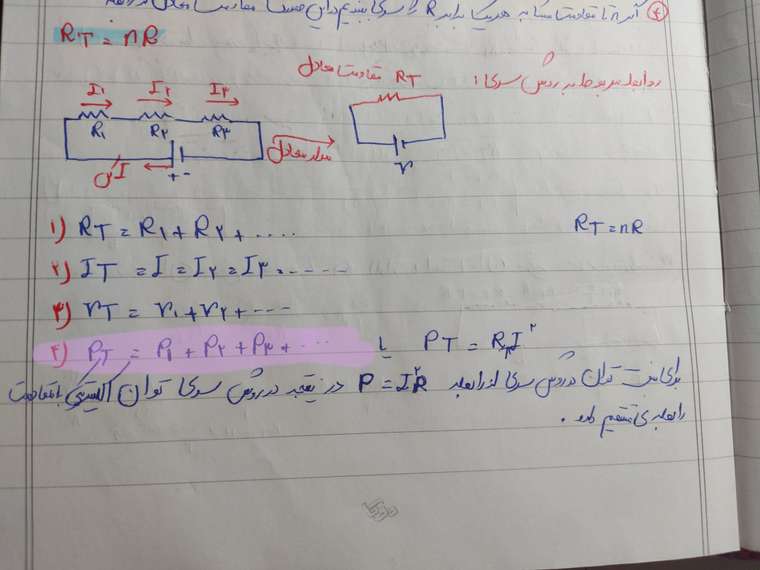 ④ اگر n تا مقاومت مشابه هریک برابر R را سری ببندیم
RT = nR
روابط مربوط به روش سری :
مقاومت معادل RT
I۱ I۲ I۳
R۱ R۲ R۳
I کل
+ -
مدار معادل
V
۱) RT = R۱ + R۲ + ....
RT = nR
۲) IT = I = I۲ = I۳ - - - - -
۳) VT = V۱ + V۲ + ---
۴) PT = P۱ + P۲ + P۳ + ... یا PT = RTI²
برای توان در روش سری از رابطه P = I²R در نتیجه در روش سری توان الکتریکی با مقاومت
رابطه ی مستقیم دارد .